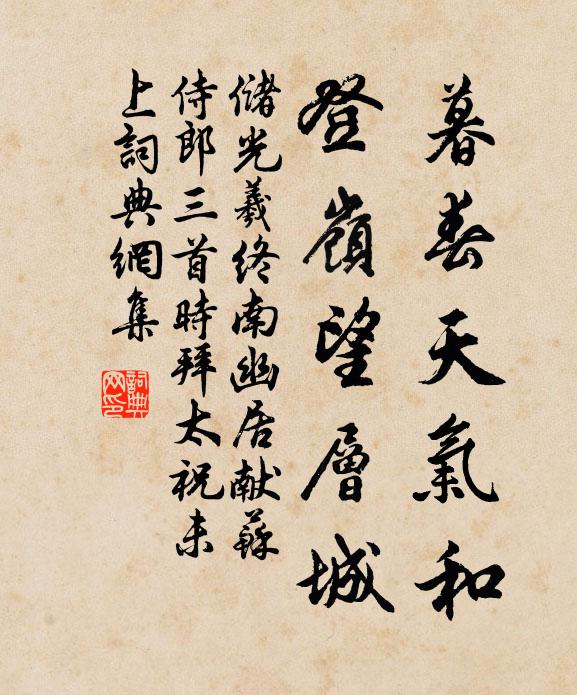 暮春天氣和
登嶺望層城
儲光羲終南幽居献蘇
侍郎三首時拜太祝未
上詞典網集
詞典
网印